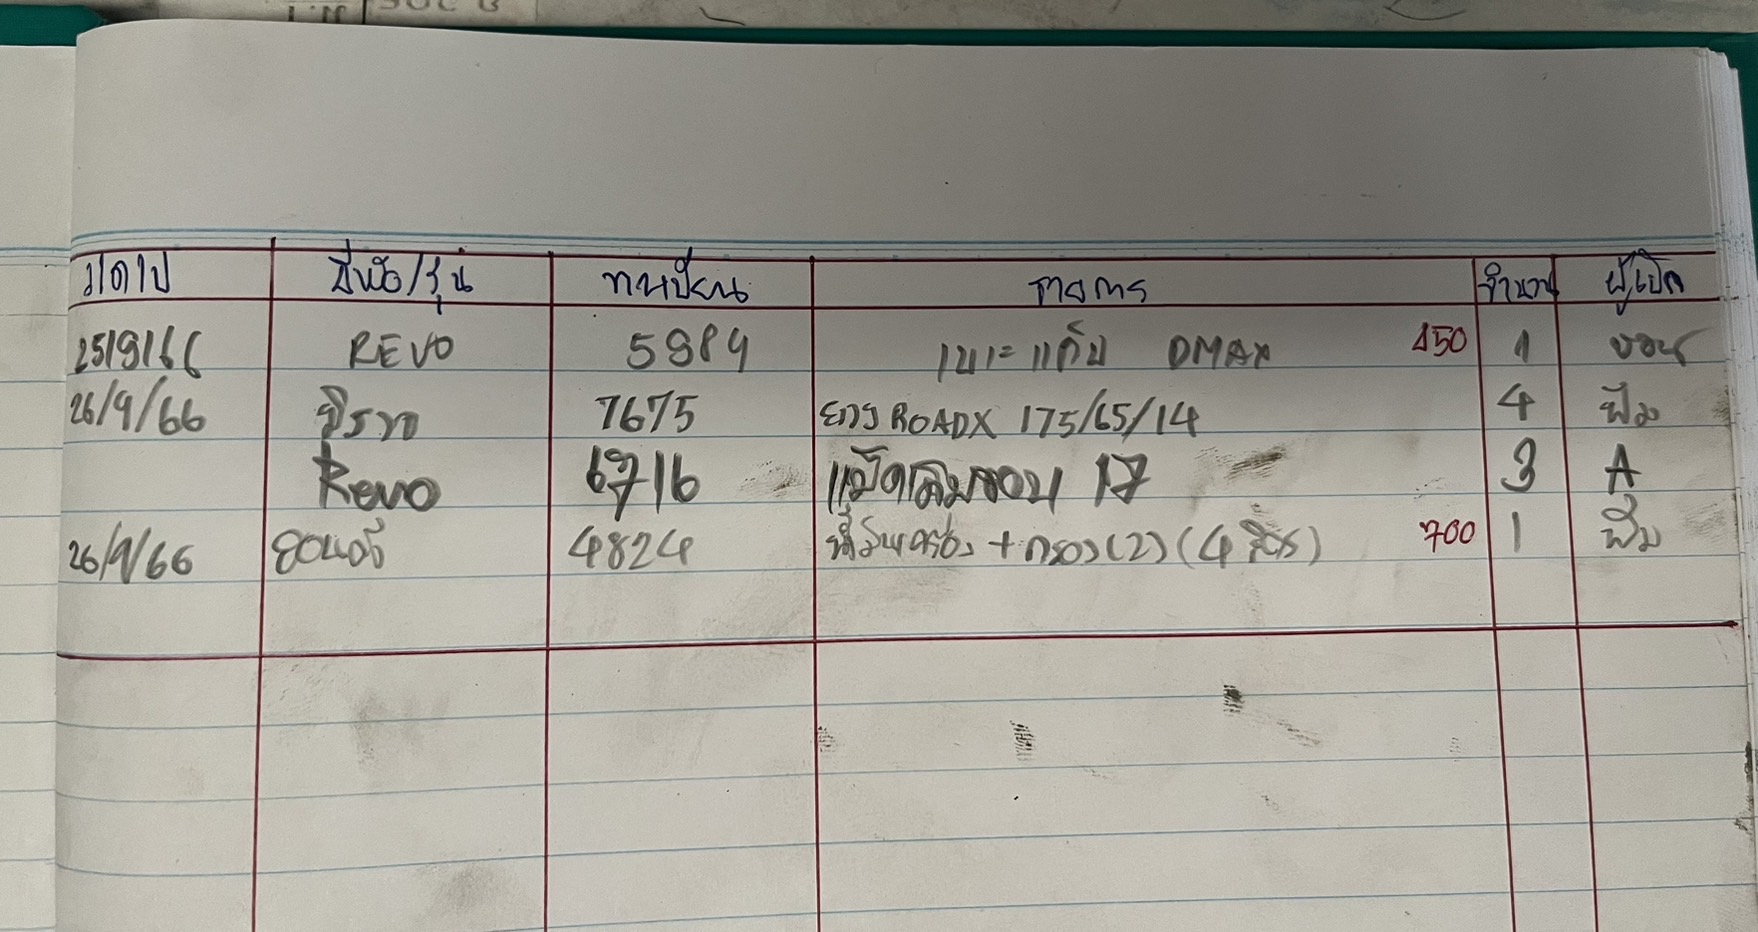 ว/ด/ป ยี่ห้อ/รุ่น ทะเบียน รายการ จำนวน ผู้เบิก
25/9/66 REVO 5984 เบาะแค็บ DMAX 450 1
26/9/66 7675 ยาง ROADX 175/65/14 4 ฟิม
Revo 6716 แม็กเดิมขอบ 17 3 A
26/9/66 ฮอนด้า 4824 น้ำมันเครื่อง + กรอง (2) (4 ลิตร) 700 1 ฟิม